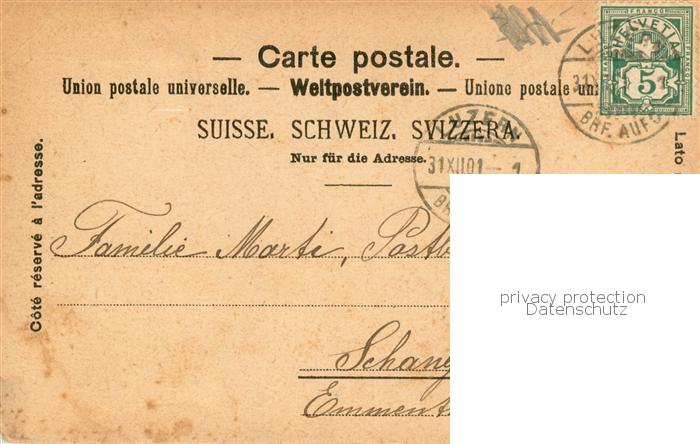 — Carte postale. —
Union postale universelle. — Weltpostverein. — Unione postale un
SUISSE. SCHWEIZ. SVIZZERA.
Nur für die Adresse.
Côté réservé à l'adresse.
Lato
FRANCO
HELVETIA
5
BHF. AUFG
UZERN
31XII01— 1
Familie Marti, Postb
Schang
Emment
privacy protection
Datenschutz